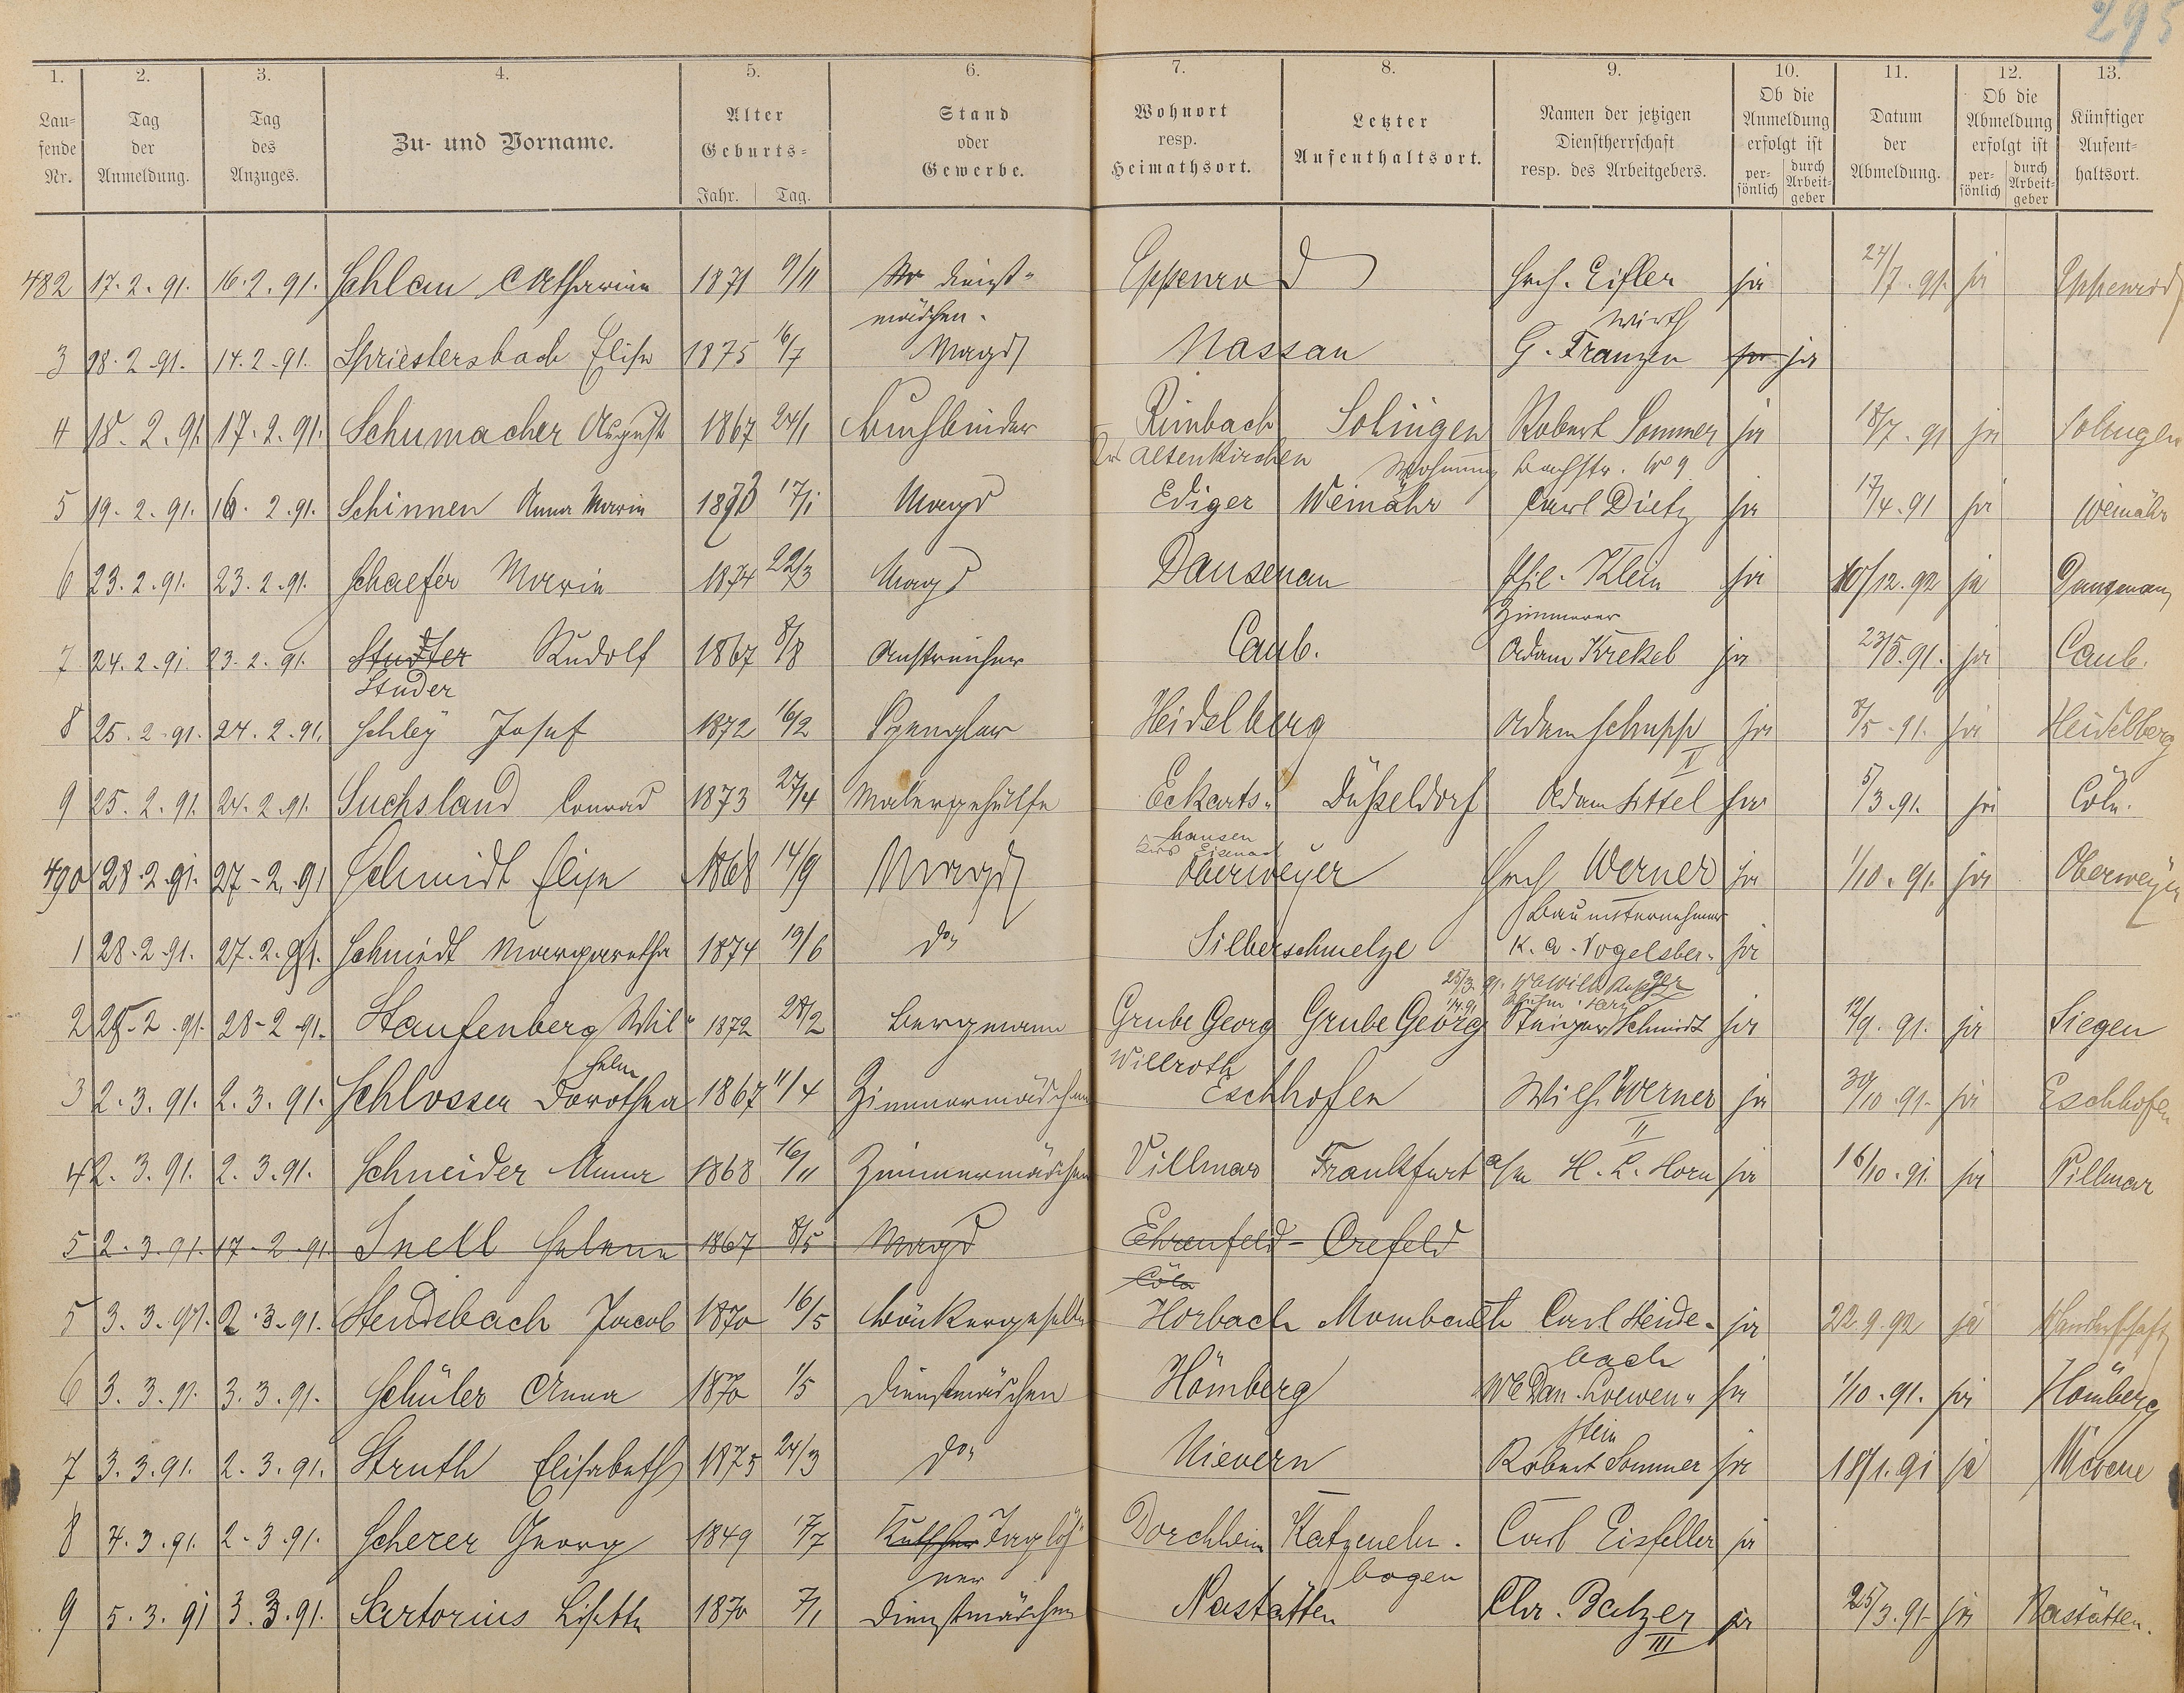 295
1. 2. 3. 4. 5. 6. 7. 8. 9. 10. 11. 12. 13.
Lau= fende Nr. Tag der Anmeldung. Tag des Anzuges. Zu- und Vorname. Alter Geburts= Jahr. Tag. Stand oder Gewerbe. Wohnort resp. Heimathsort. Letzter Aufenthaltsort. Namen der jetzigen Dienstherrschaft resp. des Arbeitgebers. Ob die Anmeldung erfolgt ist per= sönlich durch Arbeit= geber Datum der Abmeldung. Ob die Abmeldung erfolgt ist per= sönlich durch Arbeit= geber Künftiger Aufent= haltsort.
482 17.2.91. 16.2.91. Schlau Catharina 1871 9/11 Dienst= Eppenrod Hch. Eisler ja 24/7.91. ja Eppenrod
mädchen. Wirth
3 18.2.91. 14.2.91. Spriestersbach Elise 1875 16/7 Magd Nassau G. Franzen ja ja
4 18.2.91 17.2.91. Schumacher August 1867 24/1 Buchbinder Rimbach Solingen Robert Sommer ja 18/7.91 ja Solingen
Altenkirchen Wohnung Bachstr. No 9
5 19.2.91. 16.2.91. Schinnen Anna Maria 1873 17/1 Magd Ediger Weinähr Carl Dietz ja 17/4.91 ja Weinähr
6 23.2.91. 23.2.91. Schaefer Maria 1874 22/3 Magd Dausenau Phil. Klein ja 10/12.92 ja Dausenau
Zimmerer
7 24.2.91 23.2.91. Studter Rudolf 1867 8/8 Anstreicher Caub. Adam Krekel ja 23/5.91. ja Caub.
Studer
8 25.2.91. 24.2.91. Schley Josef 1872 16/2 Spengler Heidelberg Adam Schupp ja 8/5.91. ja Heidelberg
II
9 25.2.91. 24.2.91. Suchsland Conrad 1873 27/4 Malergehülfe Eckarts= Düßeldorf Adam Sittel ja 5/3.91. ja Cöln.
hausen
490 28.2.91. 27.2.91 Schmidt Elise 1868 14/9 Magd Oberweyer Hch Werner ja 1/10.91. ja Oberweyer
Bauunternehmer
1 28.2.91. 27.2.91. Schmidt Margaretha 1874 19/6 do. Silberschmelze K. A. Vogelsber= ja
ger
2 28.2.91. 28.2.91. Staufenberg Wil= 1872 28/2 Bergmann Grube Georg Grube Georg Steiger Schmidt ja 12/9.91. ja Siegen
helm Willroth
3 2.3.91. 2.3.91. Schlosser Dorothea 1867 11/4 Zimmermädchen Eschhofen Wilh. Werner ja 30/10.91. ja Eschhofen
II
4 2.3.91. 2.3.91. Schneider Anna 1868 16/11 Zimmermädchen Villmar Frankfurt a/m H. L. Horn ja 16/10.91. ja Villmar
5 2.3.91. 17.2.91 Snell Helene 1867 8/5 Magd Ehrenfeld - Crefeld
Cöln
5 3.3.91. 2.3.91. Steudsbach Jacob 1870 16/5 Bäckergeselle Horbach Mombach Carl Heide= ja 22.9.92 ja Wanderschaft
bach
6 3.3.91. 3.3.91. Schüler Anna 1870 1/5 Dienstmädchen Hömberg We Dan. Loewen= ja 1/10.91. ja Hömberg
stein
7 3.3.91. 2.3.91. Struth Elisabeth 1875 24/3 do. Nievern Robert Sommer ja 18/1.91 ja Nievern
8 4.3.91. 2.3.91. Scherer Georg 1849 17/7 Kutscher Taglöh= Dorchheim Katzeneln. Carl Eisfeller ja
ner bogen
9 5.3.91 3.3.91. Sartorius Lisette 1870 7/1 Dienstmädchen Nastätten Chr. Balzer ja 25/3.91. ja Nastätten.
III